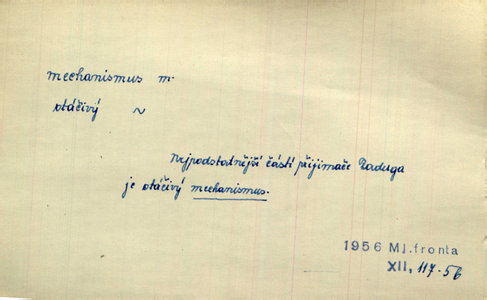 mechanismus m.
otáčivý ~
Nejpodstatnější částí přijimače Raduga
je otáčivý mechanismus.
1956 Ml.fronta
XII, 117-56